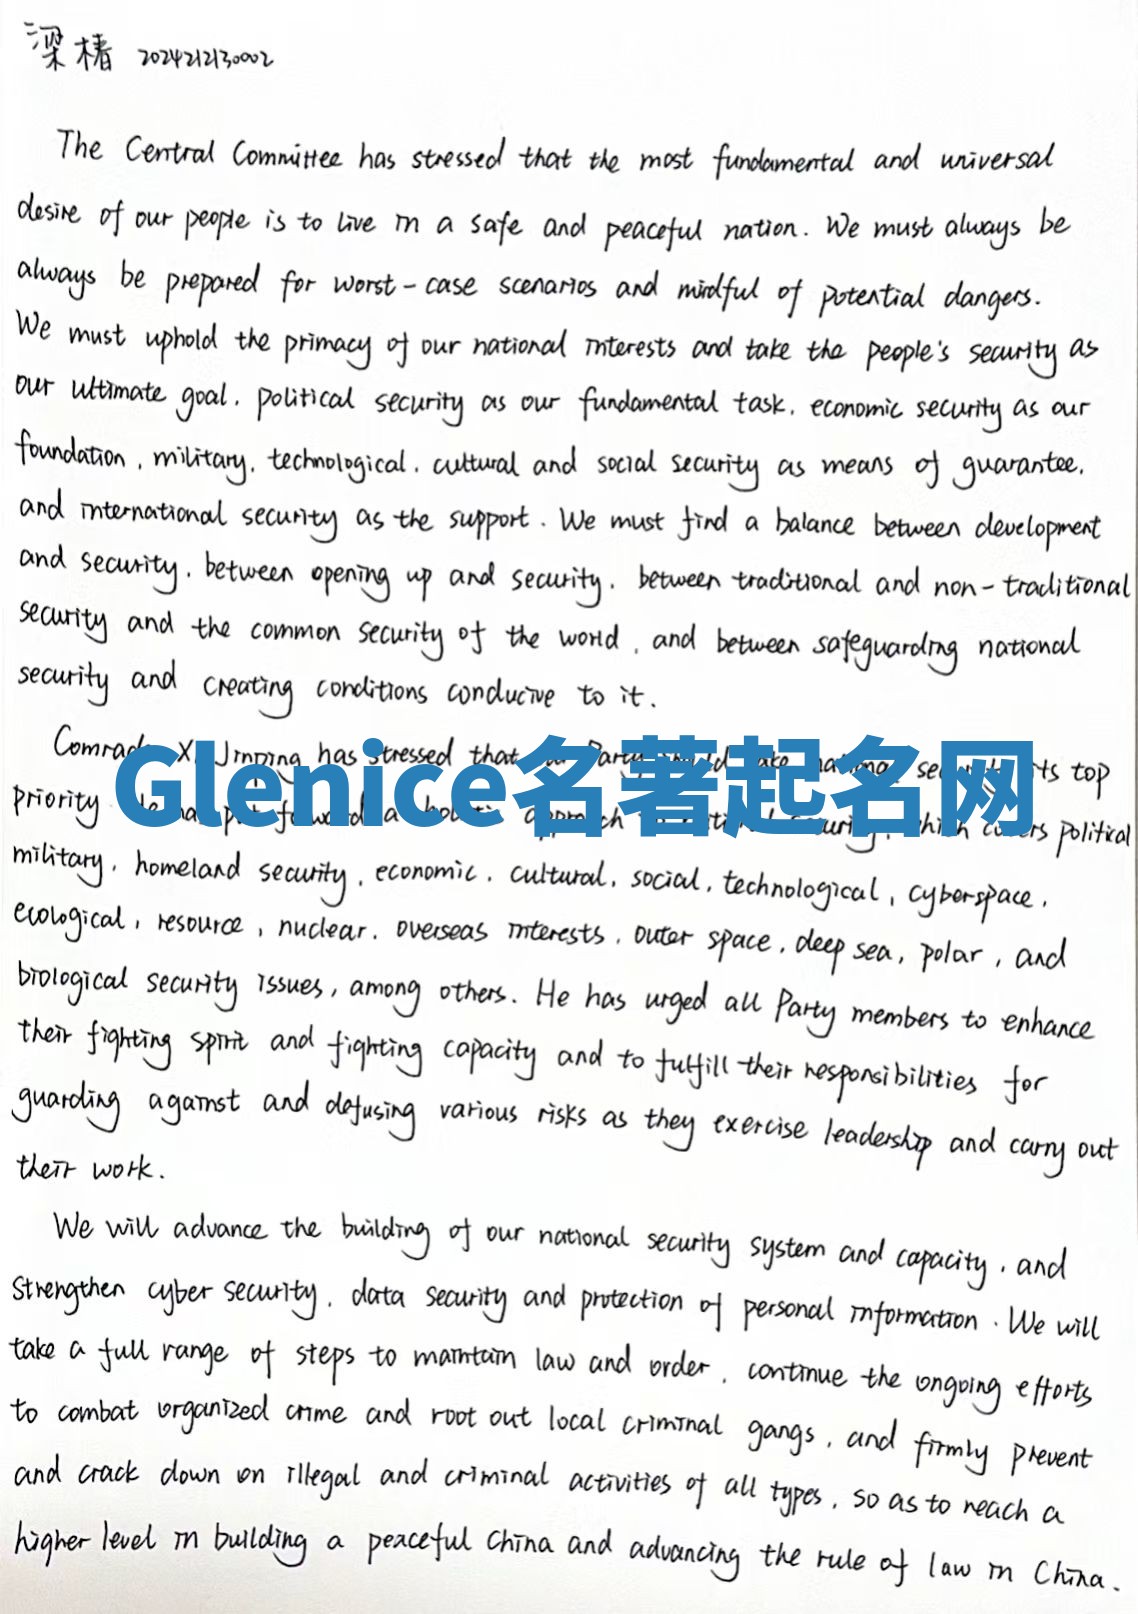 梁椿 2024212130002
The Central Committee has stressed that the most fundamental and universal
desire of our people is to live in a safe and peaceful nation. We must always be
always be prepared for worst-case scenarios and mindful of potential dangers.
We must uphold the primacy of our national interests and take the people's security as
our ultimate goal, political security as our fundamental task, economic security as our
foundation, military, technological, cultural and social security as means of guarantee,
and international security as the support. We must find a balance between development
and security, between opening up and security, between traditional and non-traditional
security and the common security of the world, and between safeguarding national
security and creating conditions conducive to it.
Comrade Xi Jinping has stressed that Party national its top
Glenice名著起名网
priority political
military, homeland security, economic, cultural, social, technological, cyberspace,
ecological, resource, nuclear, overseas interests, outer space, deep sea, polar, and
biological security issues, among others. He has urged all Party members to enhance
their fighting spirit and fighting capacity and to fulfill their responsibilities for
guarding against and defusing various risks as they exercise leadership and carry out
their work.
We will advance the building of our national security system and capacity, and
strengthen cyber security, data security and protection of personal information. We will
take a full range of steps to maintain law and order, continue the ongoing efforts
to combat organized crime and root out local criminal gangs, and firmly prevent
and crack down on illegal and criminal activities of all types, so as to reach a
higher level in building a peaceful China and advancing the rule of law in China.